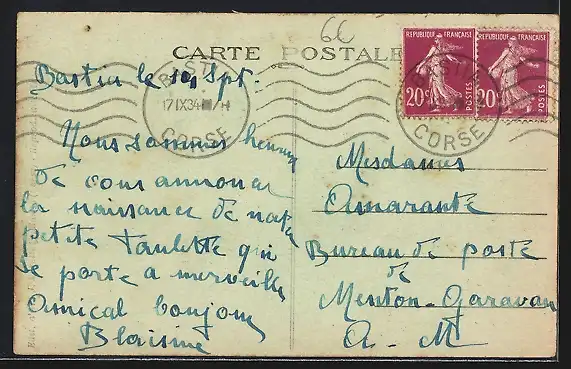 6c
CARTE POSTALE
RÉPUBLIQUE FRANÇAISE
20c
POSTES
RÉPUBLIQUE FRANÇAISE
20c
POSTES
BASTIA
17 IX 34
CORSE
BASTIA
CORSE
Bastia le Sept.
Nous sommes heureux
de vous annoncer
la naissance de notre
petite Paulette qui
se porte a merveille
Amical bonjour
Blaisine
Mesdames
Amarante
Bureau de poste
de
Menton-Garavan
A-M